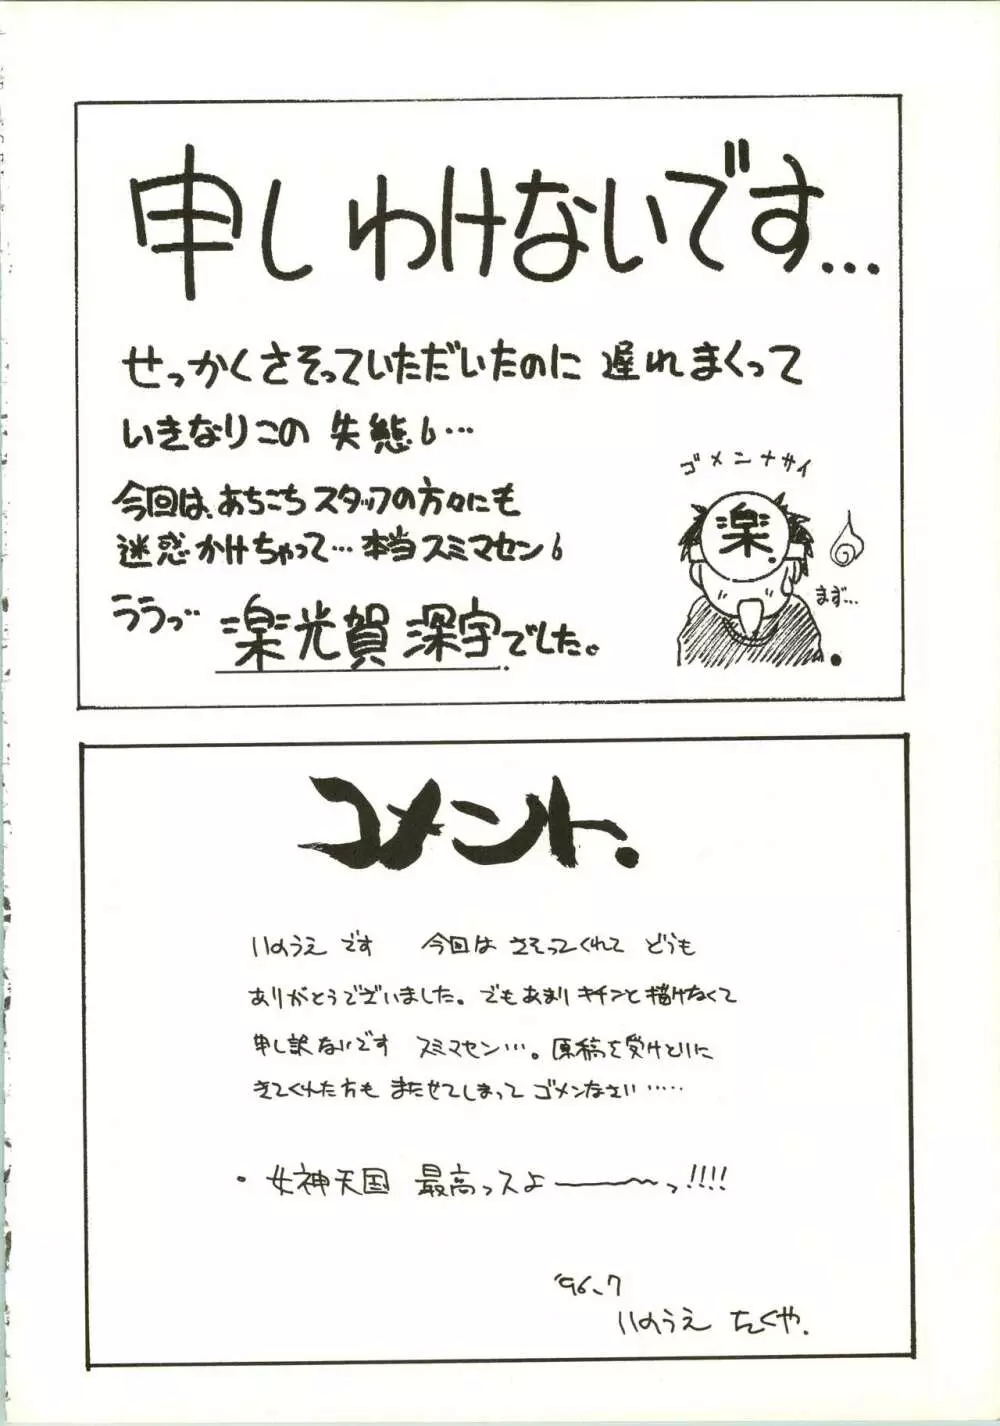 申しわけないです…
せっかくさそっていただいたのに 遅れまくって
いきなりこの 失態♭…
今回は、あちこちスタッフの方々にも
迷惑かけちゃって…本当スミマセン♭
ゴメンナサイ
楽
まず…
ララっ〃 楽光賀 深宇でした。
コメント.
いのうえです 今回は さそってくれて どうも
ありがとうございました。でもあまりキチンと描けなくて
申し訳ないです スミマセン…。原稿を受けとりに
きてくれた方も またせてしまって ゴメンなさい……
・女神天国 最高っスよ――〜っ!!!!
'96.7
いのうえ たくや.